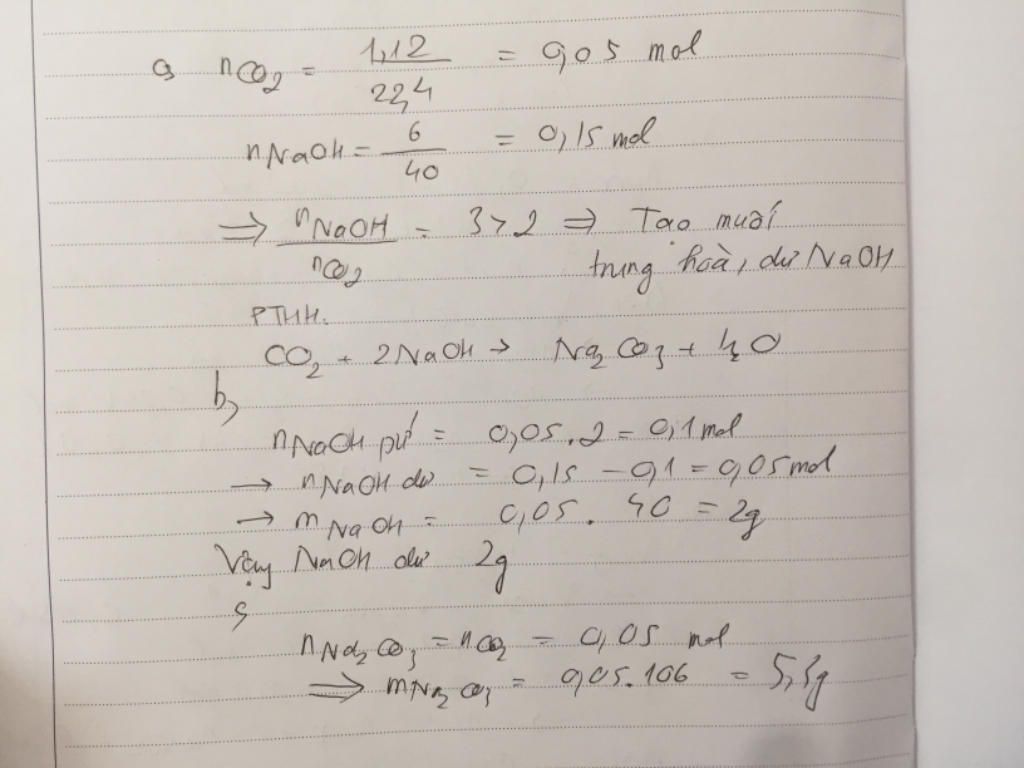 a, nCO2 = 1,12/22,4 = 0,05 mol
nNaOH = 6/40 = 0,15 mol
⇒ nNaOH/nCO2 = 3 > 2 ⇒ Tạo muối
trung hoà, dư NaOH
PTHH.
CO2 + 2NaOH → Na2CO3 + H2O
b,
nNaOH pứ = 0,05.2 = 0,1 mol
→ nNaOH dư = 0,15 - 0,1 = 0,05 mol
→ mNaOH = 0,05. 40 = 2g
Vậy NaOH dư 2g
c,
nNa2CO3 = nCO2 = 0,05 mol
⇒ mNa2CO3 = 0,05.106 = 5,3g